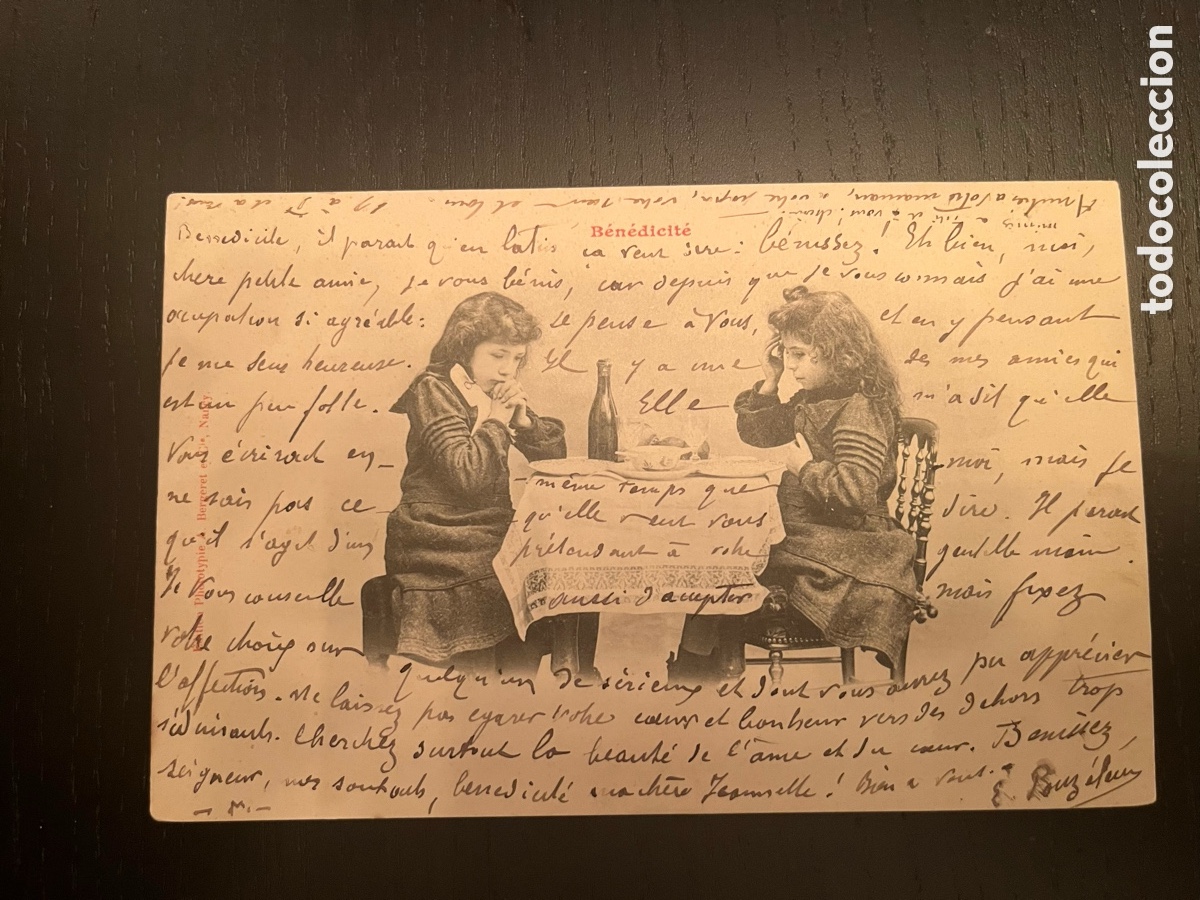 Amitiés à votre maman, à votre papa, votre sœur et tous
Bénédicité
Benedicite, il parait qu'en latin ça veut dire: bénissez! Eh bien, moi,
chère petite amie, je vous bénis, car depuis que je vous connais j'ai une
occupation si agréable: Je pense à vous, et en y pensant
je me sens heureuse. Il y a une de mes amies qui
est un peu folle. Elle m'a dit qu'elle
vous écrirait en même temps que moi, mais je
ne sais pas ce qu'elle veut vous dire. Il parait
qu'il s'agit d'un prétendant à votre gentille main.
Je vous conseille aussi d'accepter mais fixez
votre choix sur quelqu'un de sérieux et dont vous aurez pu apprécier
l'affection. Ne laissez pas égarer votre cœur et bonheur vers des dehors trop
séduisants. Cherchez surtout la beauté de l'âme et du cœur. Benissez,
seigneur, benedicité ma chère ! Bien à vous.
- M. -
Bergeret et Cie, Nancy
todocoleccion